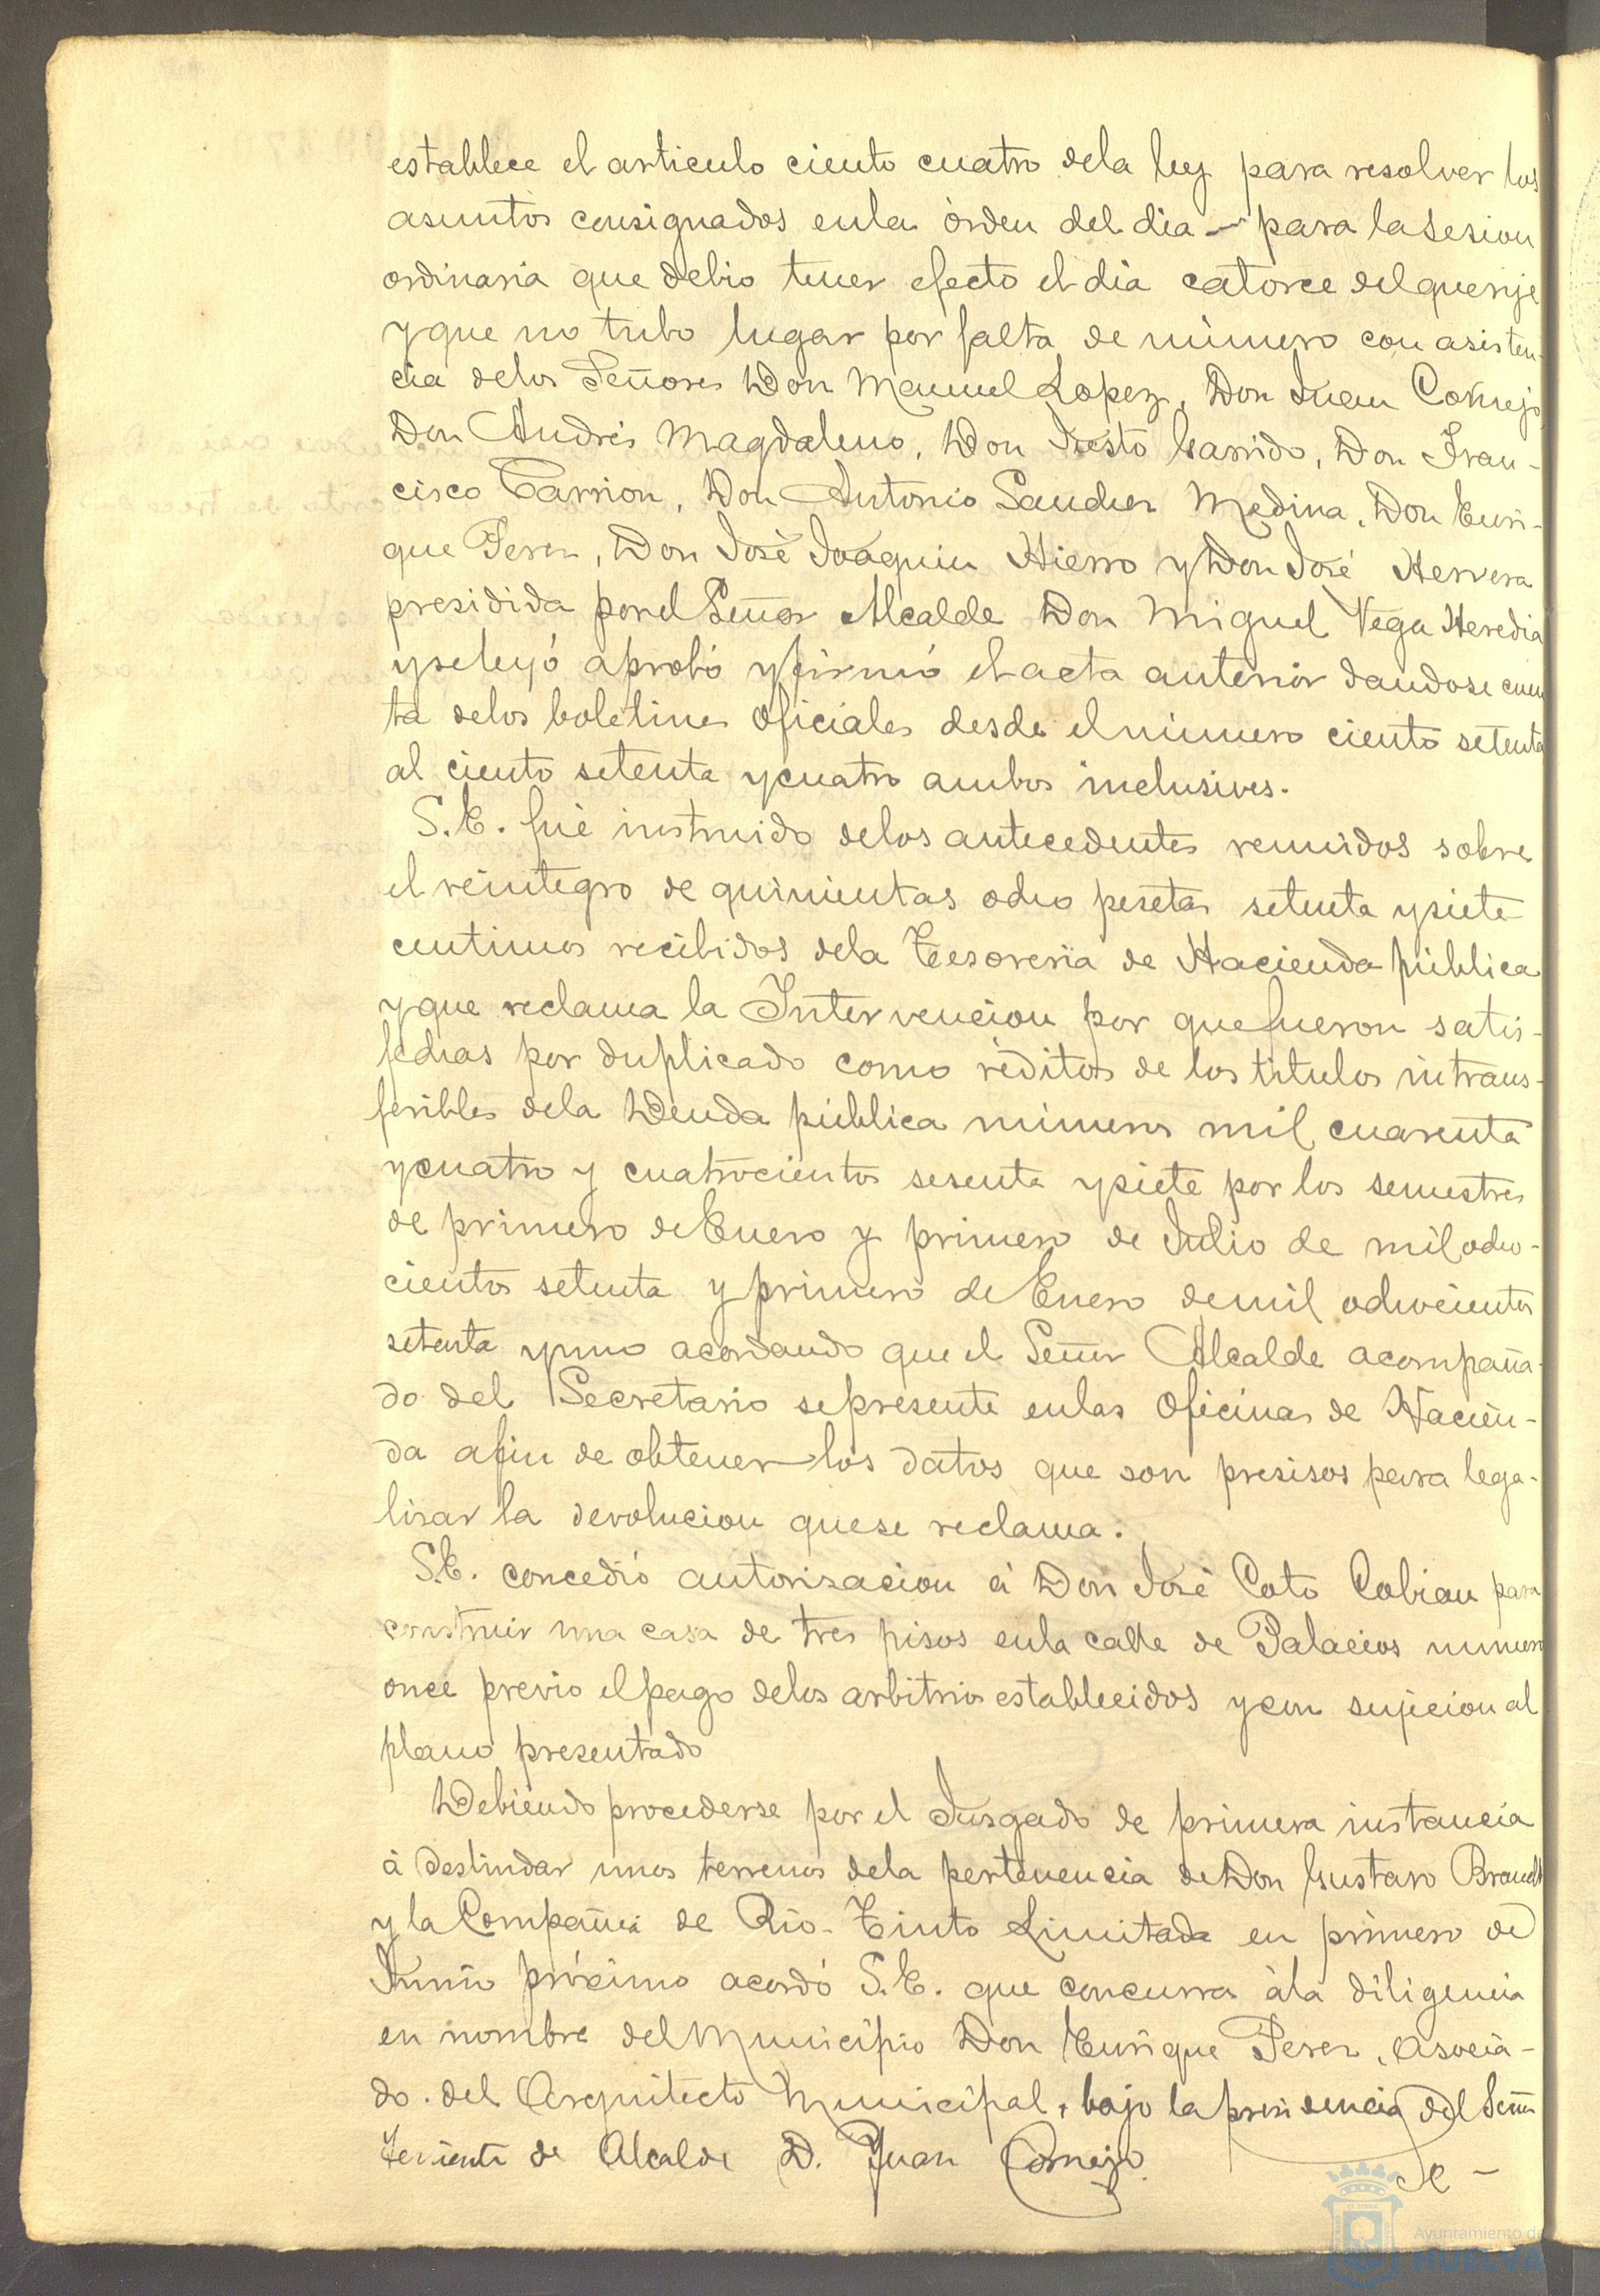 establece el articulo ciento cuatro dela ley para resolver los
asuntos consignados enla órden del dia para la sesion
ordinaria que debio tener efecto el dia catorce del que rije
y que no tubo lugar por falta de número con asisten-
cia delos Señores Don Manuel Lopez, Don Juan Cornejo
Don Andrés Magdaleno, Don Justo Garrido, Don Fran-
cisco Carrion, Don Antonio Sanchez Medina, Don Enri-
que Perez, Don José Joaquin Hierro y Don José Herrera
presidida por el Señor Alcalde Don Miguel Vega Heredia
y se leyó aprobó y firmó el acta anterior dandose cuen
ta delos boletines oficiales desde el número ciento setenta
al ciento setenta y cuatro ambos inclusives.
S.E. fué instruido delos antecedentes reunidos sobre
el reintegro de quinientas ocho pesetas setenta y siete
centimos recibidos dela Tesoreria de Hacienda pública
y que reclama la Intervencion por que fueron satis-
fechas por duplicado como réditos de los titulos intrans-
feribles dela Deuda pública números mil cuarenta
y cuatro y cuatrocientos sesenta y siete por los semestres
de primero de Enero y primero de Julio de mil ocho-
cientos setenta y primero de Enero de mil ochocientos
setenta y uno acordando que el Señor Alcalde acompaña-
do del Secretario se presente enlas oficinas de Hacien-
da afin de obtener los datos que son presisos para lega-
lisar la devolucion que se reclama.
S.E. concedió autorisacion á Don José Coto Cobian para
construir una casa de tres pisos enla calle de Palacios numero
once previo el pago delos arbitrios establecidos y con sujecion al
plano presentado
Debiendo procederse por el Jusgado de primera instancia
á deslindar unos terrenos dela pertenencia de Don Gustavo Brandt
y la Compañia de Rio-Tinto Limitada en primero de
Junio próximo acordó S.E. que concurra á la diligencia
en nombre del Municipio Don Enrique Perez, asocia-
do del Arquitecto Municipal, bajo la presidencia del Señor
Teniente de Alcalde D. Juan Cornejo.
Se -
Ayuntamiento de
HUELVA